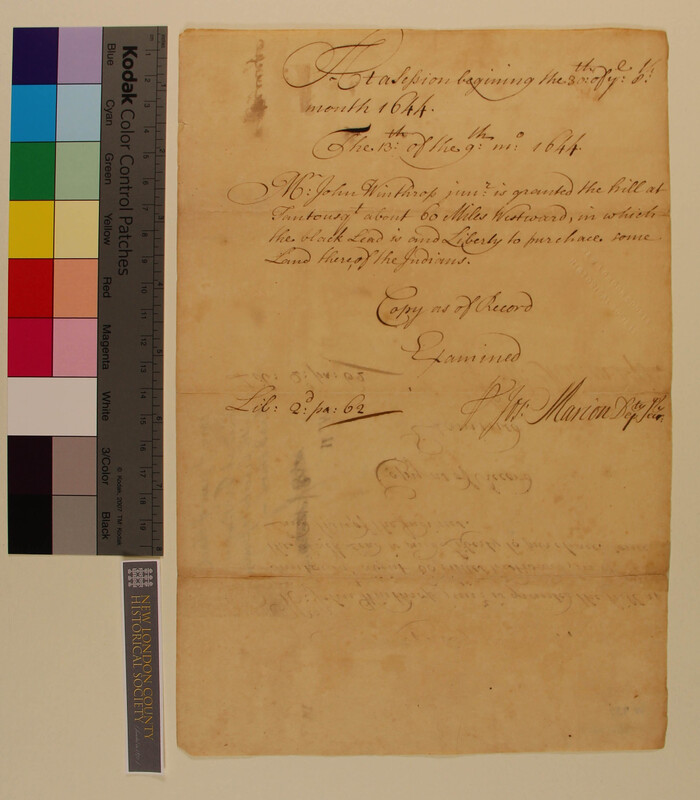 At a Session begining the 30th: of ye: 8th:
month 1644.
The 13th: of the 9th: mo: 1644.
Mr: John Winthrop junr: is granted the hill at
Tantousqt about 60 Miles Westward, in which
the black Lead is and Liberty to purchace some
Land there of the Indians.
Copy as of Record
Examined
Lib: 2d: pa: 62
Jos: Marion Depty Secry
Kodak Color Control Patches
Blue
Cyan
Green
Yellow
Red
Magenta
White
3/Color
Black
© Kodak, 2007 TM: Kodak
NEW LONDON COUNTY
HISTORICAL SOCIETY